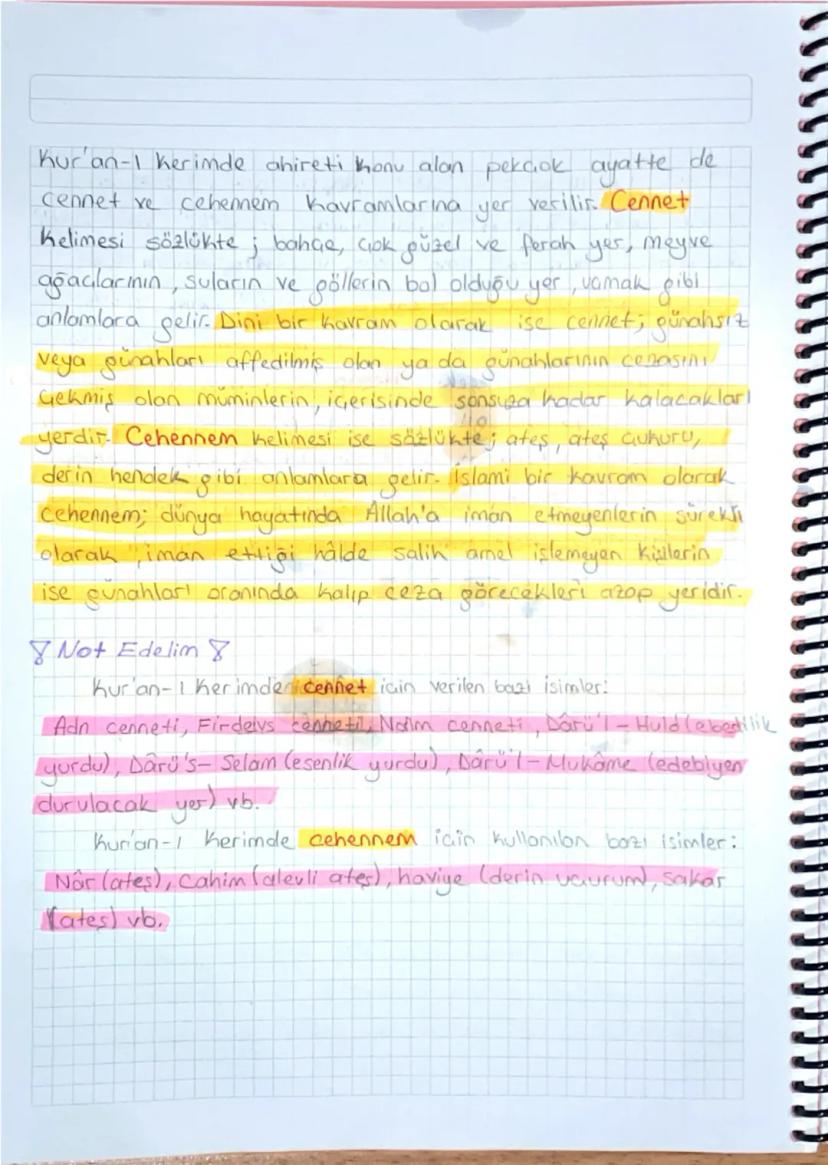 Kur'an-ı Kerimde ahireti konu alan pekçok ayatte de
cennet ve cehennem kavramlarına yer verilir. Cennet
kelimesi sözlükte ; bahçe, çok güzel ve ferah yer, meyve
ağaçlarının , suların ve göllerin bol olduğu yer , uçmak gibi
anlamlara gelir. Dini bir kavram olarak ise cennet; günahsız
veya günahları affedilmiş olan ya da günahlarının cezasını
çekmiş olan müminlerin, içerisinde sonsuza kadar kalacakları
yerdir. Cehennem kelimesi ise sözlükte; ateş, ateş çukuru,
derin hendek gibi anlamlara gelir. İslami bir kavram olarak
cehennem; dünya hayatında Allah'a iman etmeyenlerin sürekli
olarak , iman ettiği hâlde salih amel işlemeyen kişilerin
ise günahları oranında kalıp ceza görecekleri azap yeridir.
Not Edelim
Kur'an-ı Kerimde cennet için verilen bazı isimler:
Adn cenneti, Firdevs cenneti, Naîm cenneti , Dârü'l - Huld (ebedilik
yurdu), Dârü's- Selam (esenlik yurdu), Dârü'l - Mukâme (edebiyen
durulacak yer) vb.
Kur'an-ı Kerimde cehennem için kullanılan bazı isimler:
Nâr (ateş), Cahim (alevli ateş), haviye (derin uçurum), sakar
(ateş) vb.